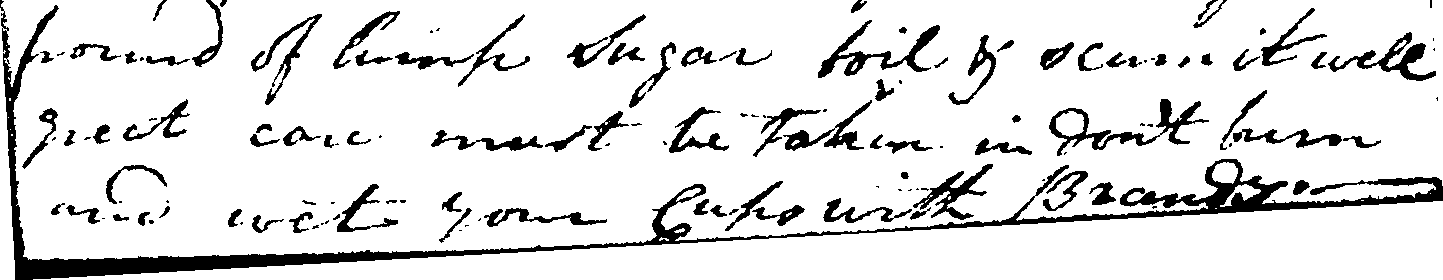 pound of lump Sugar boil & scum it well
great care must be taken in don't burn
and wet your Cups with Brandy